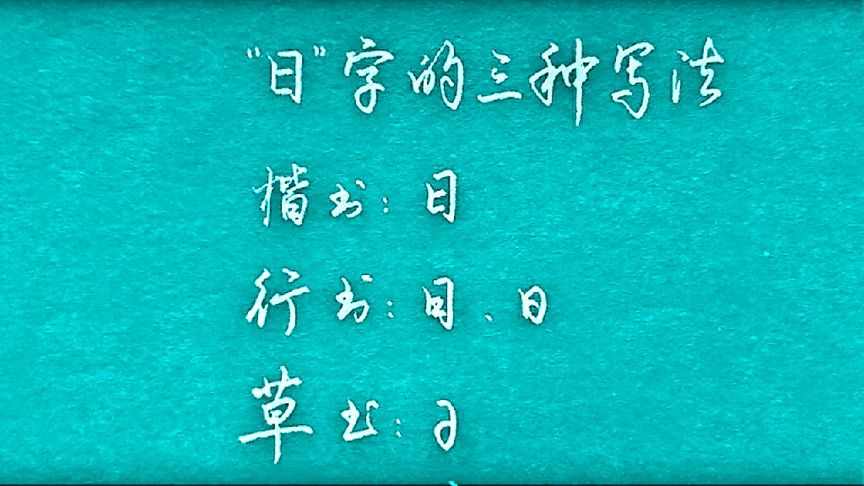 “日”字的三种写法
楷书：日
行书：日、日
草书：日